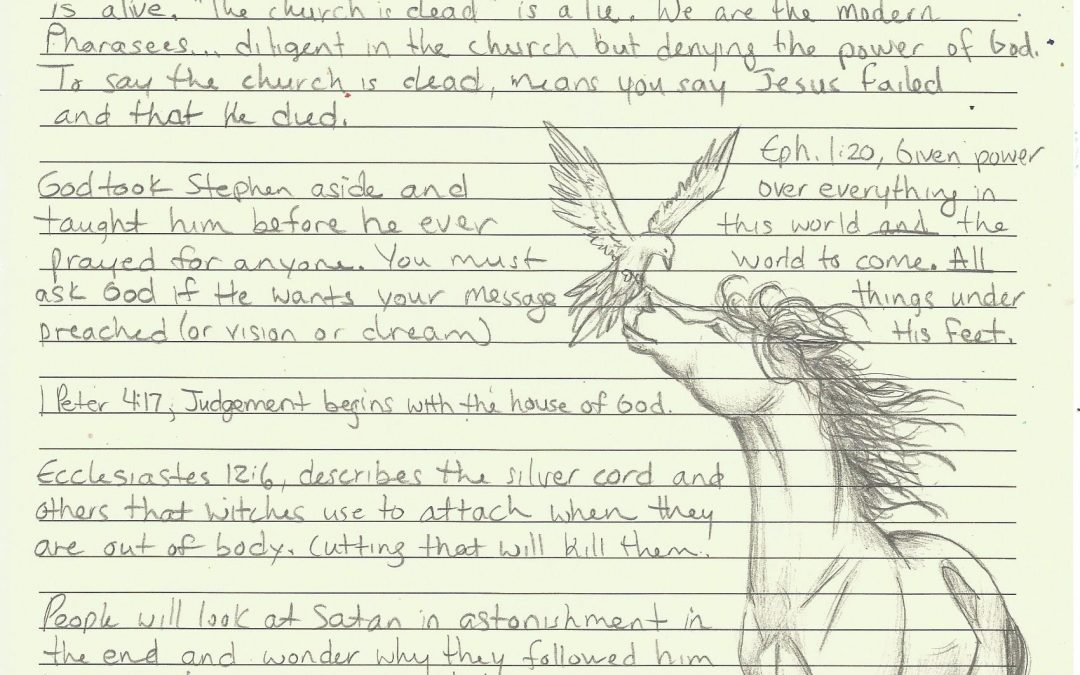 is alive. "The church is dead" is a lie. We are the modern
Pharasees... diligent in the church but denying the power of God.
To say the church is dead, means you say Jesus failed
and that He died.
Eph. 1:20, Given power
God took Stephen aside and
over everything in
taught him before he ever
this world and the
prayed for anyone. You must
world to come. All
ask God if He wants your message
things under
preached (or vision or dream)
His feet.
1 Peter 4:17, Judgement begins with the house of God.
Ecclesiastes 12:6, describes the silver cord and
others that witches use to attach when they
are out of body. Cutting that will kill them.
People will look at Satan in astonishment in
the end and wonder why they followed him